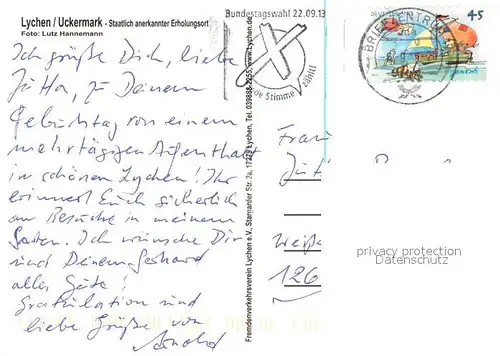 Lychen / Uckermark - Staatlich anerkannter Erholungsort
Foto: Lutz Hannemann
Ich grüße Dich, liebe
Jutta, zu Deinem
Geburtstag von einem
mehrtägigen Aufenthalt
im schönen Lychen! Ihr
erinnert Euch sicherlich
an Besuche in meinem
Garten. Ich wünsche Dir
und Deinem Gerhard
alles Gute!
Gratulation und
liebe Grüße von
Arnold
Fremdenverkehrsverein Lychen e.V., Stargarder Str. 2a, 17279 Lychen, Tel. 039888-2255, www.lychen.de
Bundestagswahl 22.09.13
Stimme zählt!
BRIEFZENTRUM
45
Frau
Weiße
126
privacy protection
Datenschutz